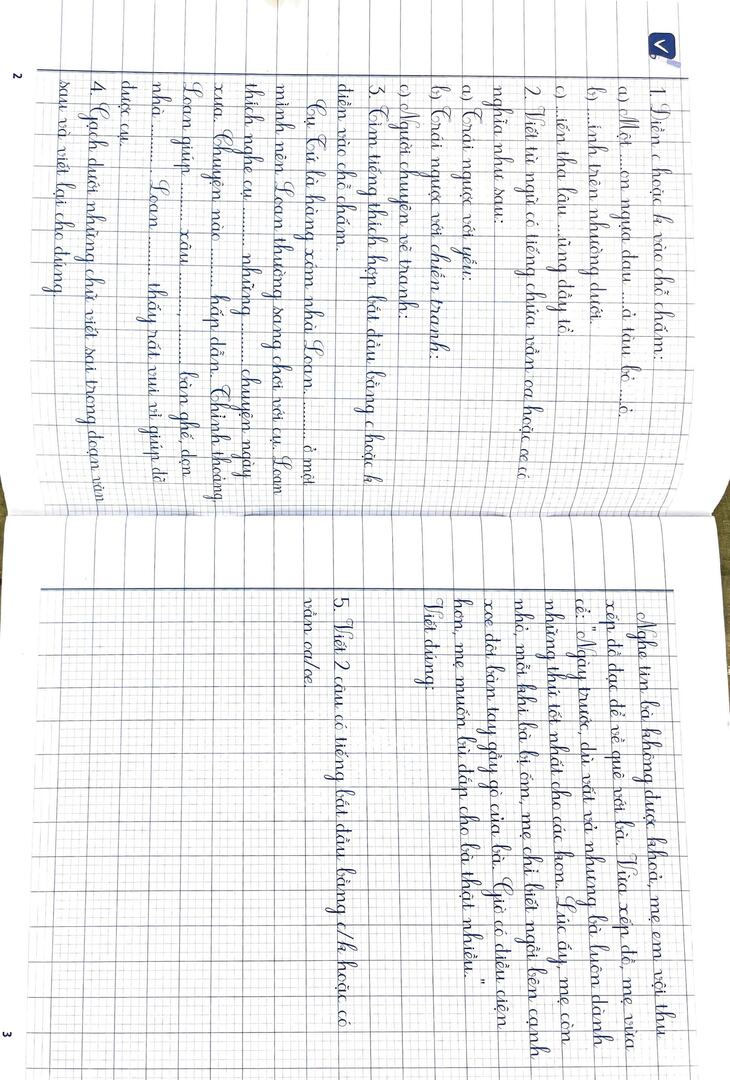 V
1. Điền c hoặc k vào chỗ chấm:
a) Một ...on ngựa đau ...ả tàu bỏ ...ỏ.
b) ...ính trên nhường dưới.
c) ...iến tha lâu ...ũng đầy tổ
2. Viết từ ngữ có tiếng chứa vần oa hoặc oe có
nghĩa như sau:
a) Trái ngược với yếu:
b) Trái ngược với chiến tranh:
c) Người chuyên vẽ tranh:
3. Tìm tiếng thích hợp bắt đầu bằng c hoặc k
điền vào chỗ chấm.
Cụ Tứ là hàng xóm nhà Loan. ......... ở một
mình nên Loan thường sang chơi với cụ. Loan
thích nghe cụ ......... những ......... chuyện ngày
xưa. Chuyện nào ......... hấp dẫn. Thỉnh thoảng,
Loan giúp ......... xâu ........., ......... bàn ghế, dọn
nhà ......... Loan ......... thấy rất vui vì giúp đỡ
được cụ.
4. Gạch dưới những chữ viết sai trong đoạn văn
sau và viết lại cho đúng.
2
Nghe tin bà không được khoả, mẹ em vội thu
xếp đồ đạc để về quê với bà. Vừa xếp đồ, mẹ vừa
cể: "Ngày trước, dù vất vả nhưng bà luôn dành
những thứ tốt nhất cho các kon. Lúc ấy, mẹ còn
nhỏ, mỗi khi bà bị ốm, mẹ chỉ biết ngồi bên cạnh
xoe đôi bàn tay gầy gò của bà. Giờ có điều ciện
hơn, mẹ muốn bù đáp cho bà thật nhiều."
Viết đúng:
5. Viết 2 câu có tiếng bắt đầu bằng c/k hoặc có
vần oa/oe.
3